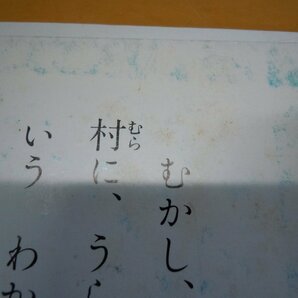 むかし、
村に、うら
むら
いう わか